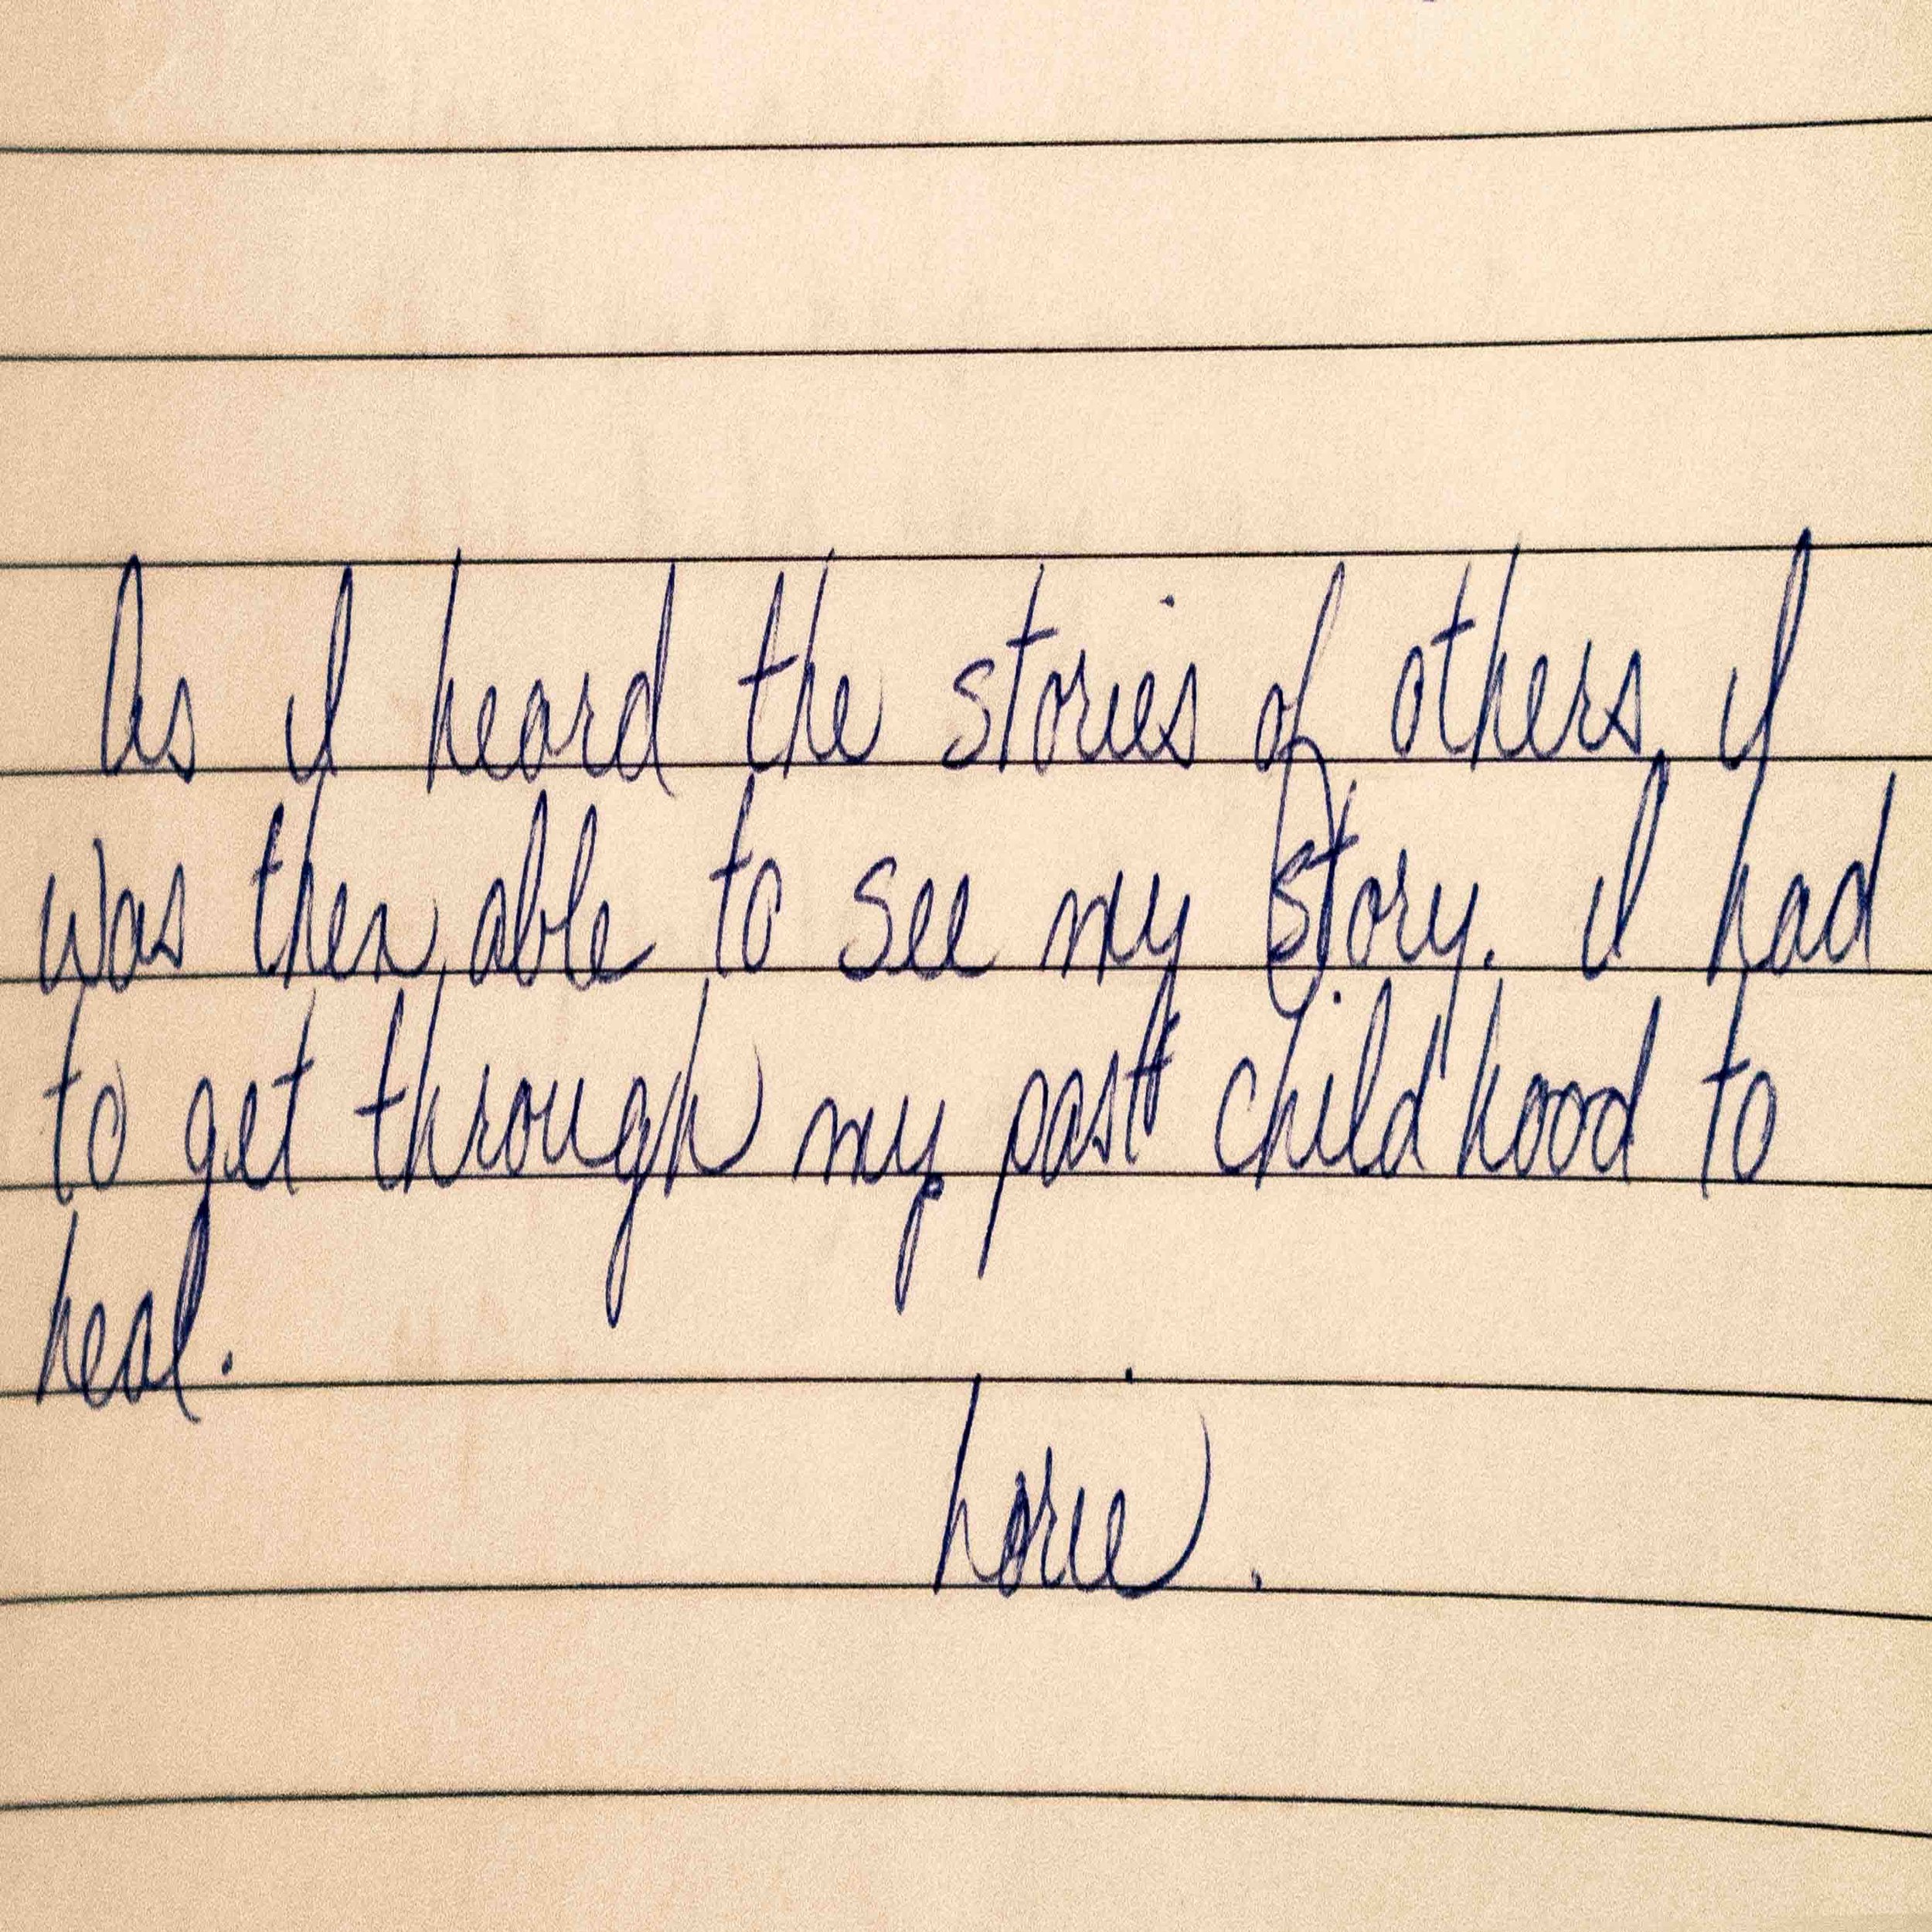 As I heard the stories of others, I
was then able to see my story. I had
to get through my past childhood to
heal.
Lorie.